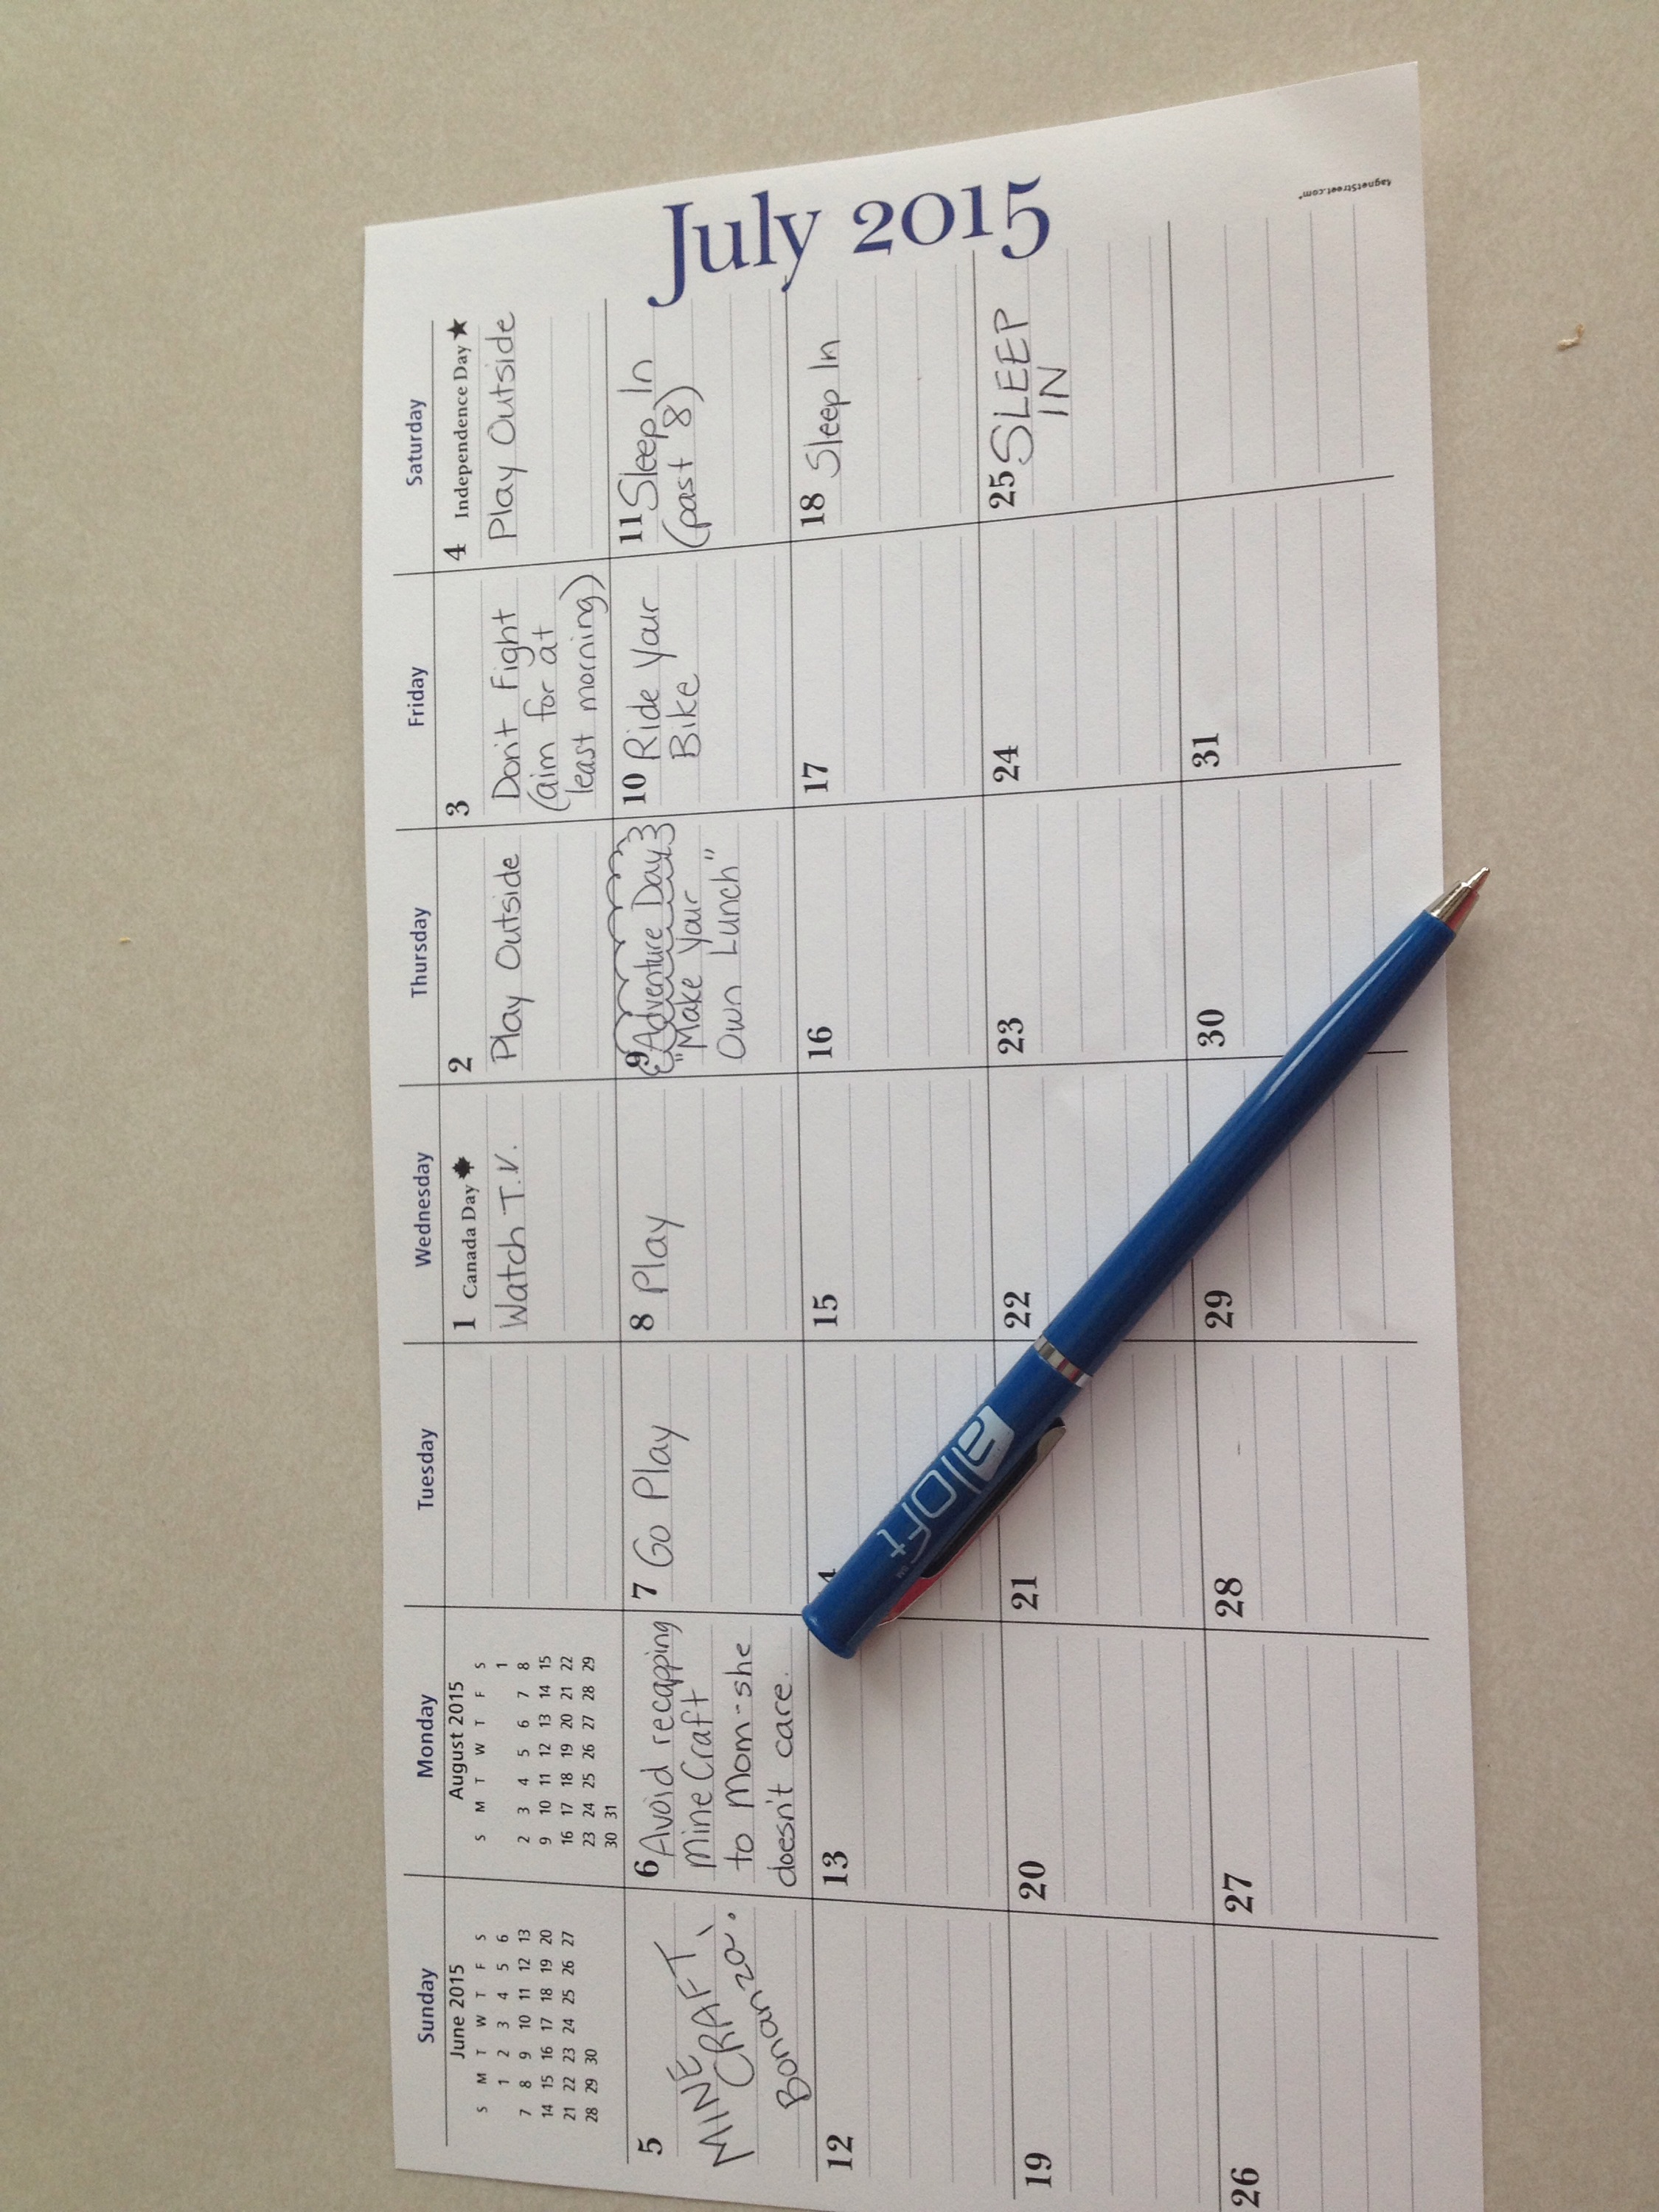 July 2015
Sunday Monday Tuesday Wednesday Thursday Friday Saturday
June 2015
S M T W T F S
1 2 3 4 5 6
7 8 9 10 11 12 13
14 15 16 17 18 19 20
21 22 23 24 25 26 27
28 29 30
August 2015
S M T W T F S
1
2 3 4 5 6 7 8
9 10 11 12 13 14 15
16 17 18 19 20 21 22
23 24 25 26 27 28 29
30 31
1 Canada Day
Watch T.V.
2
Play Outside
3
Don't Fight
(aim for at
least morning)
4 Independence Day
Play Outside
5
MINE
CRAFT
Bonanza.
6 Avoid recapping
MineCraft
to Mom-she
doesn't care.
7 Go Play
8 Play
9 Adventure Day
"Make Your
Own Lunch"
10 Ride Your
Bike
11 Sleep In
(past 8)
12 13 15 16 17
18 Sleep In
19 20 21 22 23 24
25 SLEEP
IN
26 27 28 29 30 31
aloft
SM